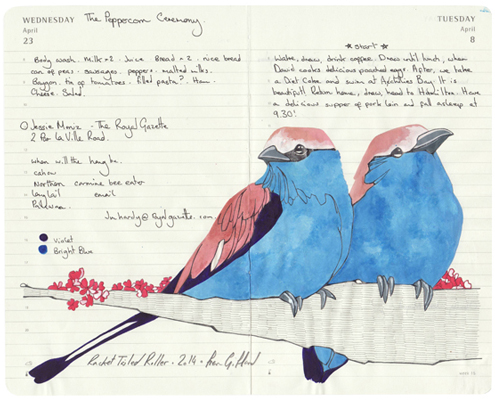 WEDNESDAY
April
23
The Peppercorn Ceremony.
Body wash. Milk x 2. Juice Bread x 2. nice bread
can of peas. sausages. peppers. malted milks.
Baygon. tin of tomatoes. filled pasta? Ham.
Cheese. Salad.
Jessie Moniz - The Royal Gazette
2 Par la Ville Road.
when will the hang be.
cahow
Northern carmine bee eater
email
@royalgazette.com.
Violet
Bright Blue
TUESDAY
April
8
★ Start ★
Wake, draw, drink coffee. Draw until lunch, when
David cooks delicious poached eggs. After, we take
a Diet Coke and swim at Bay. It is
beautiful! Return home, draw, head to Hamilton. Have
a delicious supper of pork loin and fall asleep at
9.30!
Racket Tailed Roller · 2014 ·